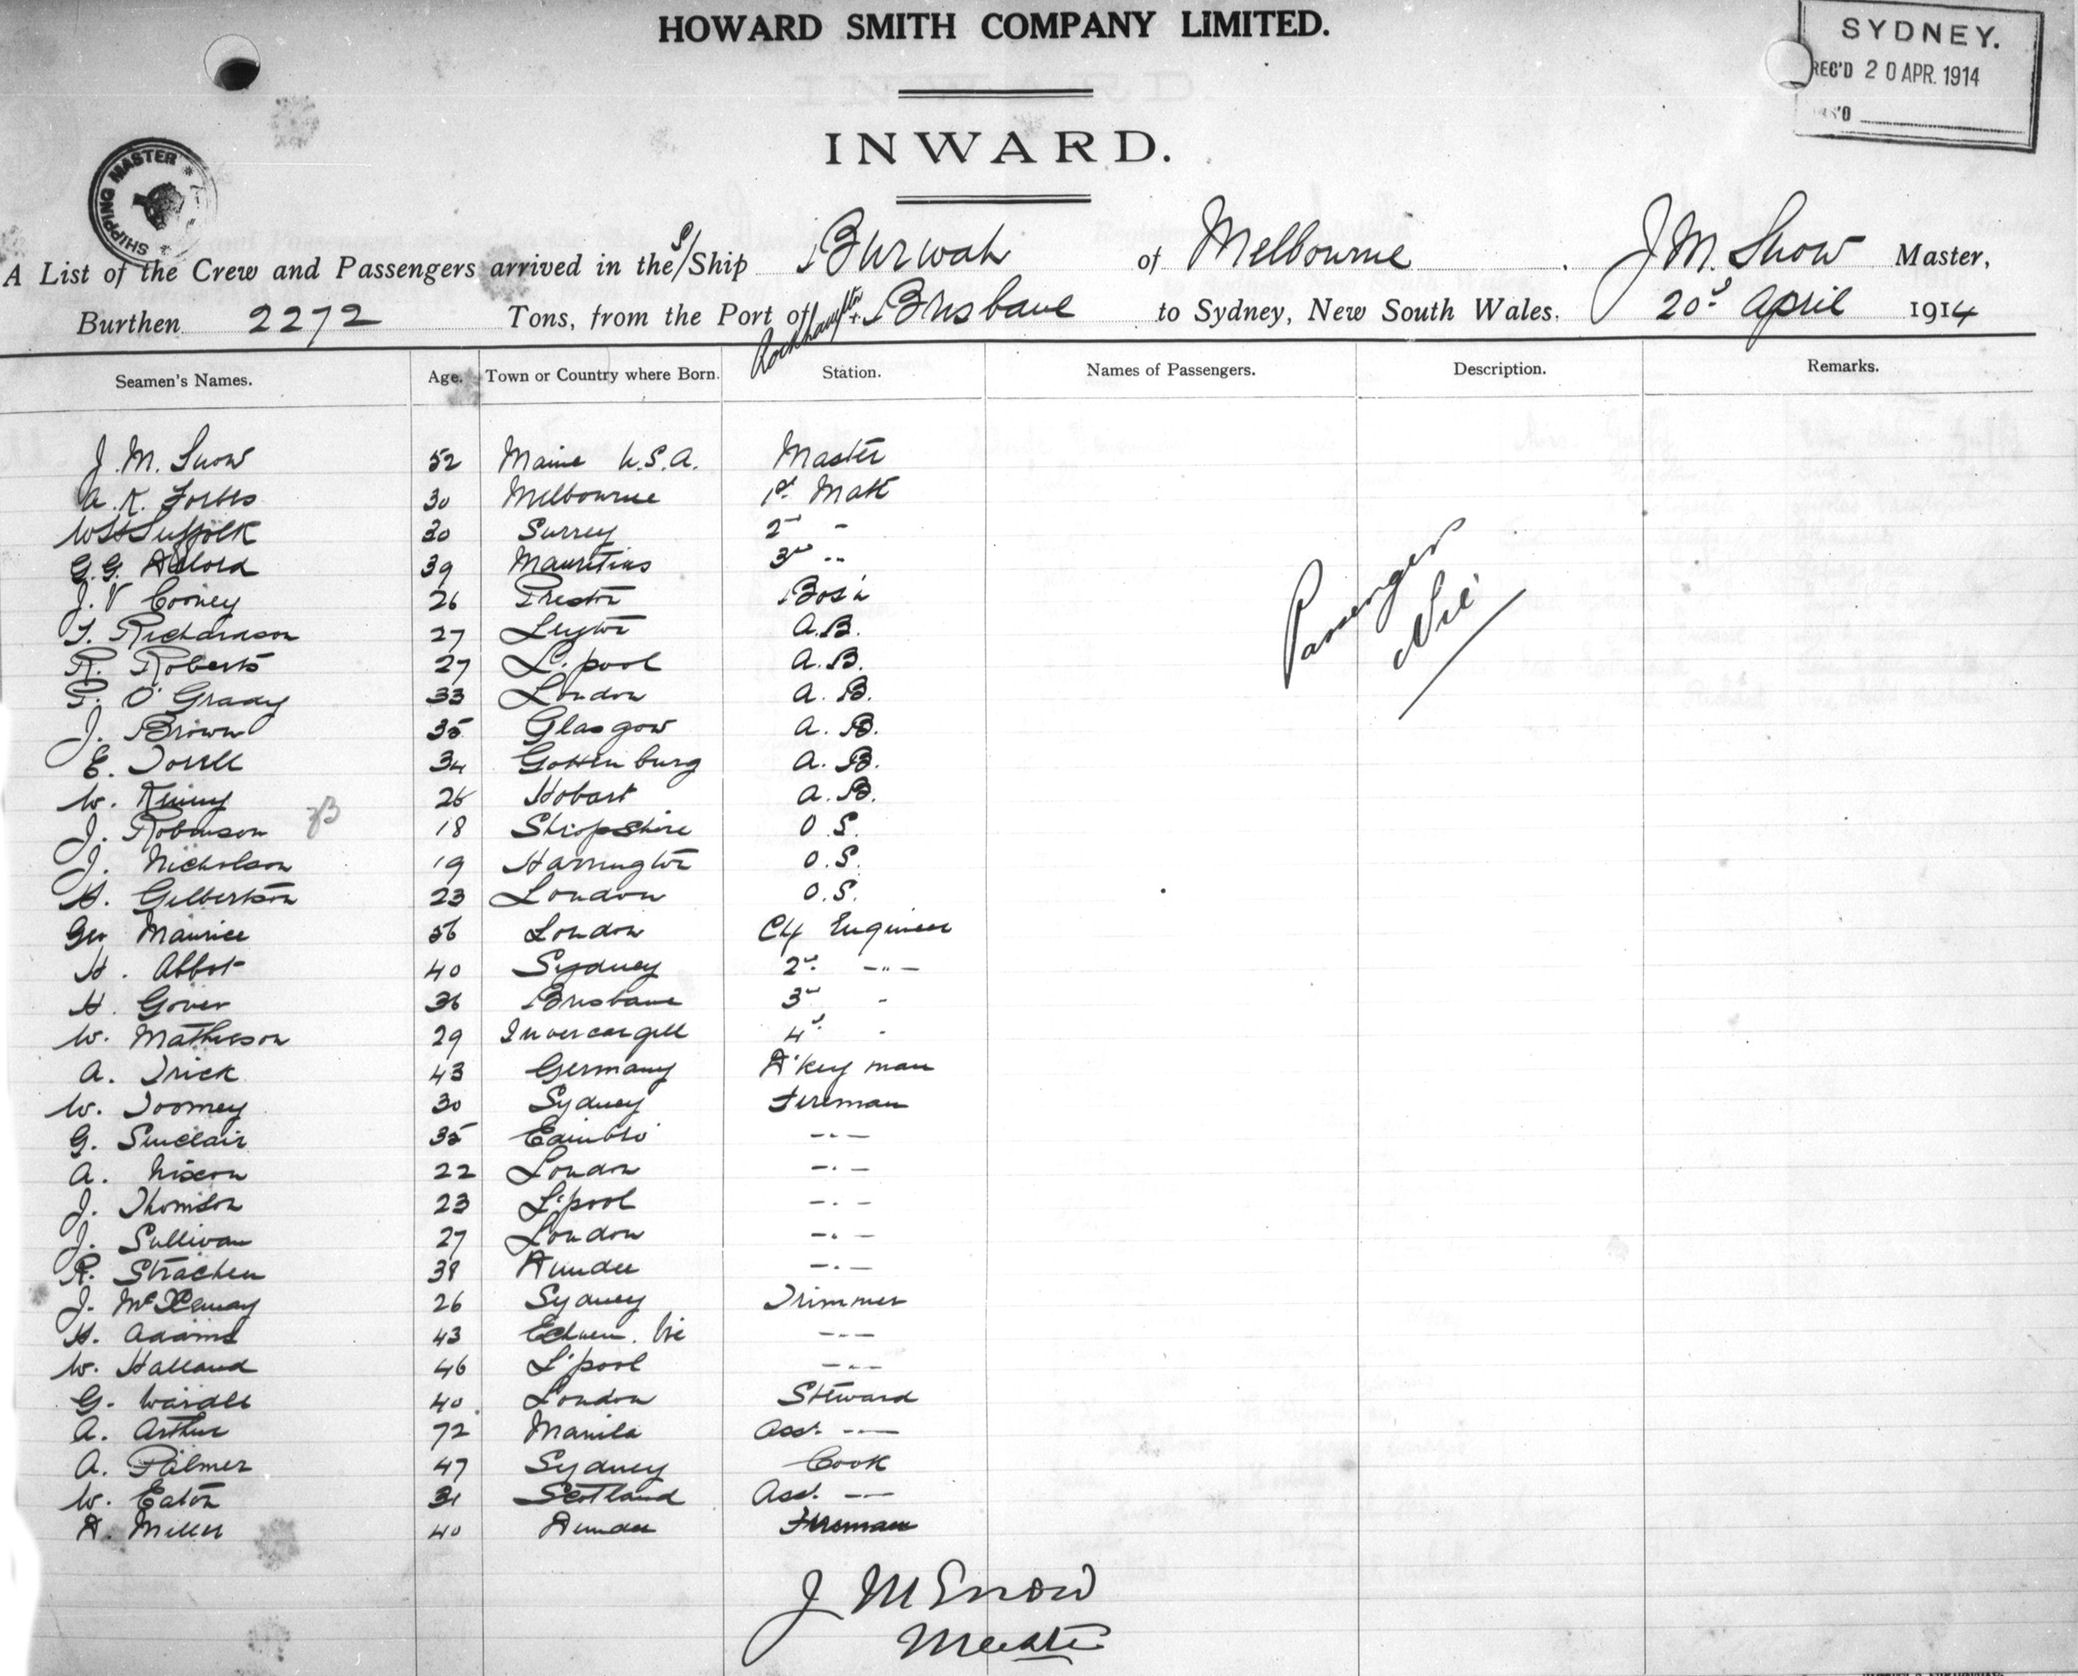 HOWARD SMITH COMPANY LIMITED.
SYDNEY.
REC'D 20 APR. 1914
INWARD.
SHIPPING MASTER
A List of the Crew and Passengers arrived in the S/Ship Burwah of Melbourne, J M. Snow Master,
Burthen 2272 Tons, from the Port of Rockhampton + Brisbane to Sydney, New South Wales. 20th April 1914
Seamen's Names. Age. Town or Country where Born. Station. Names of Passengers. Description. Remarks.
J. M. Snow 52 Maine U.S.A. Master
A. K. Forbes 30 Melbourne 1st Mate
W H Suffolk 30 Surrey 2nd "
G. G. 39 Mauritius 3rd "
J. V Cooney 26 Preston Bos'n
Passengers Nil
T. Richardson 27 A.B.
R. Roberts 27 L'pool A.B.
P. O'Grady 33 London A.B.
J. Brown 35 Glasgow A.B.
E. Torell 34 Gottenburg A.B.
W. Kenny 26 Hobart A.B.
J. Robinson 18 Shropshire O.S.
J. Nicholson 19 Harrington O.S.
H. Gilbertson 23 London O.S.
Geo Maurice 56 London Cf Engineer
H. Abbot 40 Sydney 2nd - " -
H. Gover 36 Brisbane 3rd "
W. Matheson 29 Invercargill 4th "
A. Trick 43 Germany D'key man
W. Toomey 30 Sydney Fireman
G. Sinclair 35 Edinbro' - " -
A. Nixon 22 London - " -
J. Thomson 23 L'pool - " -
J. Sullivan 27 London - " -
R. Strachen 38 Dundee - " -
J. 26 Sydney Trimmer
H. Adams 43 Vic - " -
W. Halland 46 L'pool - " -
G. Wardle 40 London Steward
A. Arthur 72 Manila Asst. - " -
A. Palmer 47 Sydney Cook
W. Eaton 31 Scotland Asst. - " -
D. Miller 40 Dundee Fireman
J M Snow
Master